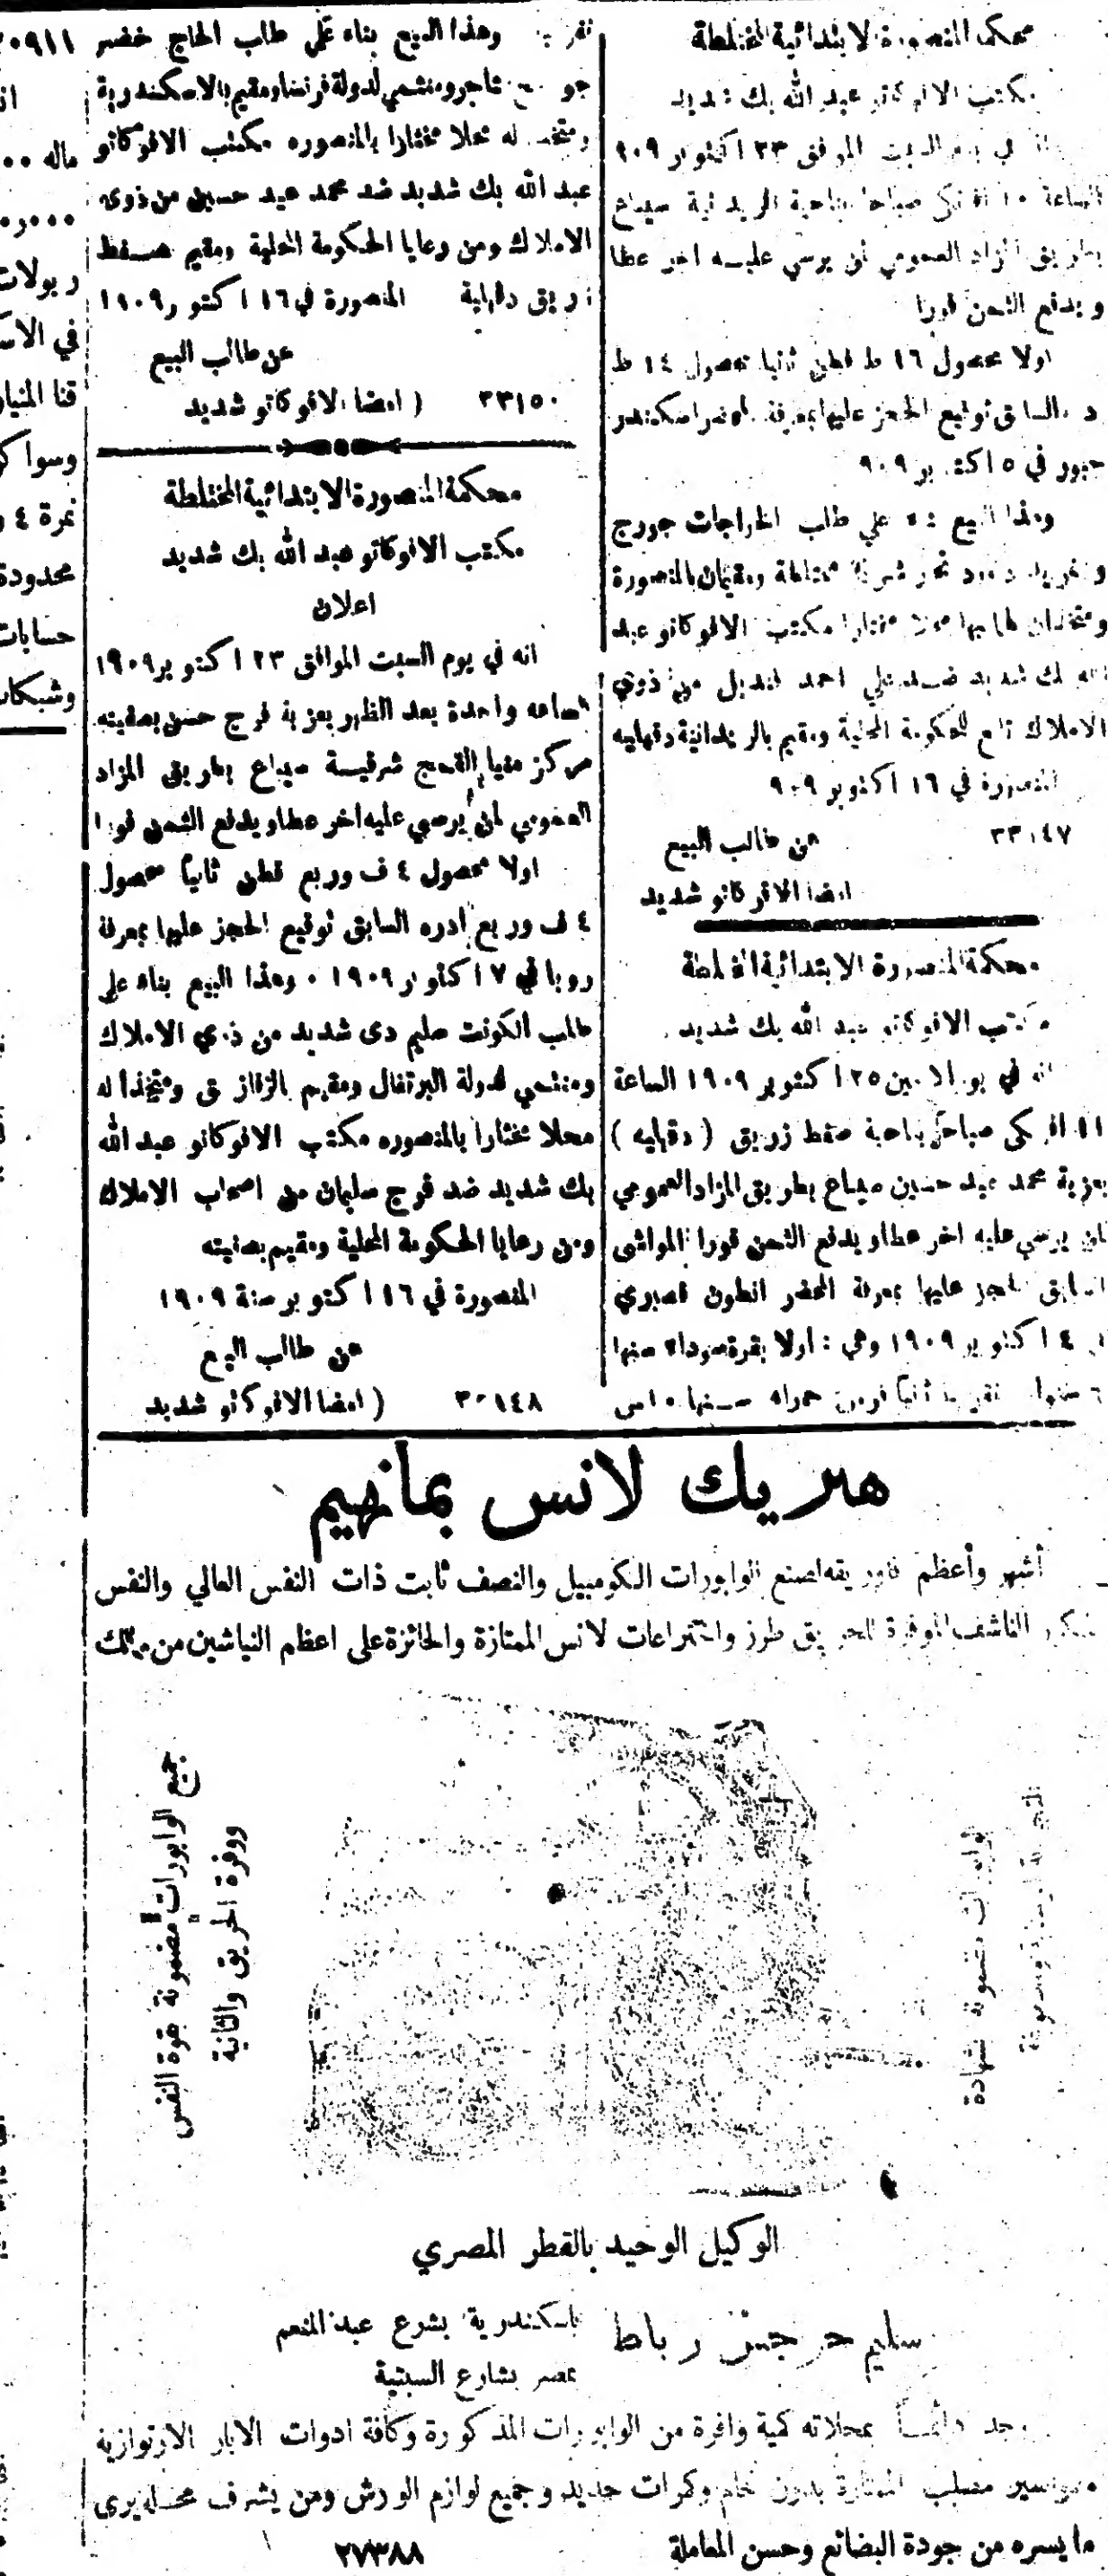 محكمة المنصورة الابتدائية المختلطة
مكتب الافوكاتو عبد الله بك شديد
في يوم السبت الموافق ٢٣ اكتوبر ٩٠٩
الساعة ١٠ افرنكي صباحا بناحية الريدانية سيباع
بطريق المزاد العمومي لمن يرسي عليه اخر عطا
ويدفع الثمن فورا
اولا محصول ١٦ ط قطن ثانيا محصول ١٤ ط
السابق توقيع الحجز عليها بمعرفة اسكندر
جبور في ٥ اكتوبر ٩٠٩
وهذا البيع بناء علي طلب الخواجات جورج
مختلطة ومقيمان بالمنصورة
ومتخذان لهما محلا مختارا مكتب الافوكاتو عبد
الله بك شديد ضد علي احمد قنديل من ذوي
الاملاك تابع للحكومة المحلية ومقيم بالريدانية دقهليه
المنصورة في ١٦ اكتوبر ٩٠٩
٣٣١٤٧ عن طالب البيع
امضا الافوكاتو شديد
محكمة المنصورة الابتدائية المختلطة
مكتب الافوكاتو عبد الله بك شديد
انه في يوم الاثنين ٢٥ اكتوبر ١٩٠٩ الساعة
١١ افرنكى صباحا بناحية صفط زريق ( دقهليه )
بعزبة محمد عيد حسنين سيباع بطريق المزاد العمومي
لمن يرسي عليه اخر عطا ويدفع الثمن فورا المواشى
السابق الحجز عليها بمعرفة المحضر انطون قصبري
في ٤ اكتوبر ١٩٠٩ وهي : اولا بقرة سوداء سنها
٦ سنوات تقريبا ثانيا حمراء سنها
تقريبا وهذا البيع بناء على طلب الحاج خضر
تاجر ومنتمي لدولة فرنسا ومقيم بالاسكندرية
ومتخذ له محلا مختارا بالمنصوره مكتب الافوكاتو
عبد الله بك شديد ضد محمد عيد حسين من ذوى
الاملاك ومن رعايا الحكومة المحلية ومقيم بصفط
زريق دقهلية المنصورة في ١٦ اكتوبر ١٩٠٩
عن طالب البيع
٣٣١٥٠ ( امضا الافوكاتو شديد
محكمة المنصورة الابتدائية المختلطة
مكتب الافوكاتو عبد الله بك شديد
اعلان
انه في يوم السبت الموافق ٢٣ اكتوبر ١٩٠٩
الساعه واحدة بعد الظهر بعزبة فرج حسن بصفيته
مركز منيا القمح شرقية سيباع بطريق المزاد
العمومي لمن يرسي عليه اخر عطا ويدفع الثمن فورا
اولا محصول ٤ ف وربع قطن ثانيا محصول
٤ ف وربع ادره السابق توقيع الحجز عليها بمعرفة
روبا في ٧ اكتوبر ١٩٠٩ ٠ وهذا البيع بناء على
طلب الكونت سليم دى شديد من ذوي الاملاك
ومنتمي لدولة البرتغال ومقيم بالزقازيق ومتخذا له
محلا مختارا بالمنصوره مكتب الافوكاتو عبد الله
بك شديد ضد فرج سليمان من اصحاب الاملاك
ومن رعايا الحكومة المحلية ومقيم بصفيته
المنصورة في ١٦ اكتوبر سنة ١٩٠٩
عن طالب البيع
٣٣١٤٨ ( امضا الافوكاتو شديد
٠٩١١
ماله
ر بولات
قنا المنيا
نمرة ٤
محدودة
حسابات
وشبكات
هنريك لانس بمانهيم
أشهر وأعظم فاوريقه لصنع الوابورات اللكومبيل والنصف ثابت ذات النفس العالي والنفس
الناشف الموفرة للحريق طرز واختراعات لانس الممتازة والحائزة على اعظم النياشين من
جميع الوابورات مضمونة بقوة النفس
ووفرة الحريق والمتانة
مضمونة بشهادة
الوكيل الوحيد بالقطر المصري
سليم جرجس رباط
باسكندرية بشرع عبد المنعم
بمصر بشارع السبتية
يوجد دائماً بمحلاته كمية وافرة من الوابورات المذكورة وكافة ادوات الابار الارتوازية
ومواسير صلب بدون لحام وكمرات حديد وجميع لوازم الورش ومن يشرف محله يرى
ما يسره من جودة البضائع وحسن المعاملة
٢٧٣٨٨